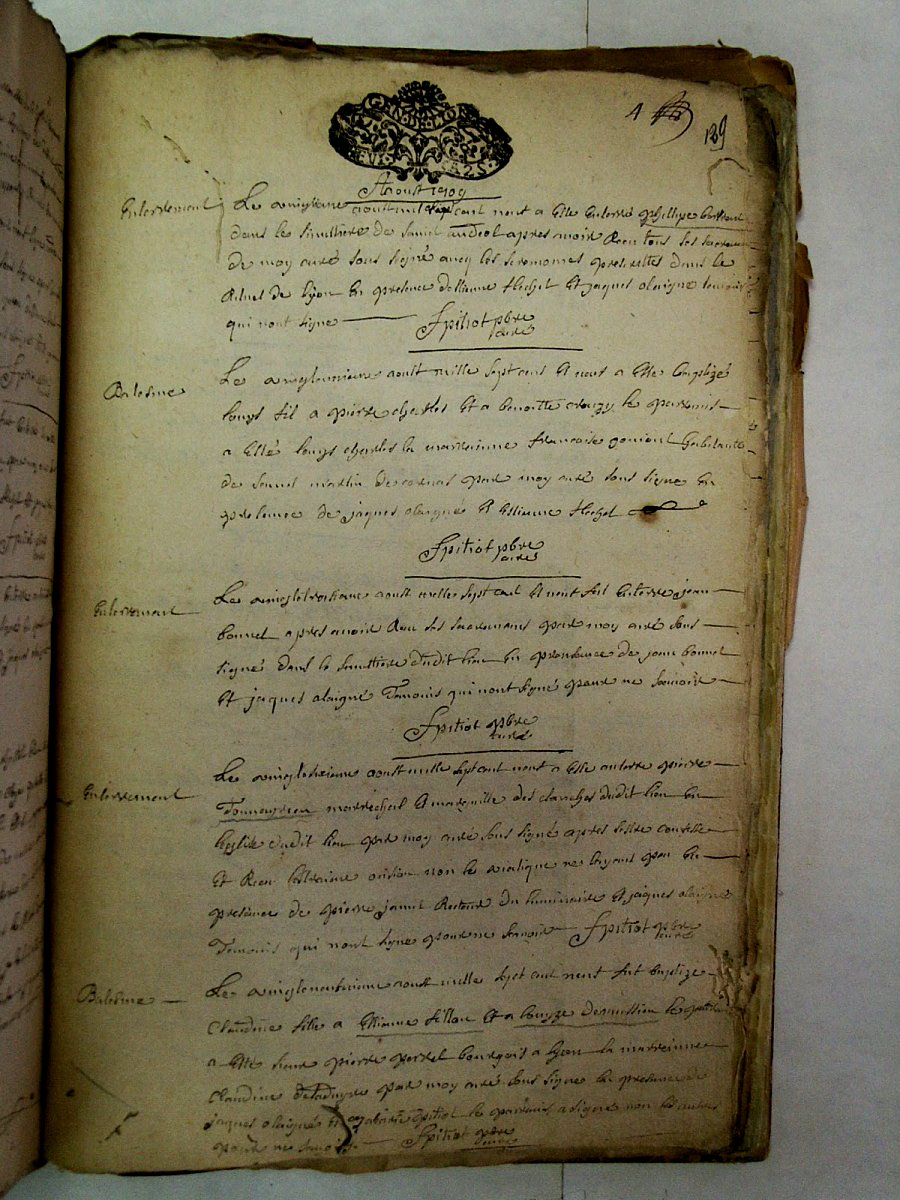 GEN DE LION
189
Aoust 1709
Enterrement
Le vingtieme aoust mil sept cent neuf a esté enterré phillipe
dans le simittiere de saint andeol apres avoir Receu tous ses sacremens
de moy curé sous signé avecq les seremonies prescrittes dans le
Rituel de Lyon en presence destienne flechet et jaques alaigne temoins
qui nont signé
Spitiot pbre
curé
Batesme
Le aoust mille sept cent et neuf a esté baptizé
louys fil a pierre charles et a benoitte le parrains
a esté louys charles la marrainne francoise habitante
de saint martin de cornas par moy curé sous signé en
presence de jaques alaigné et estienne flechet
Spitiot pbre
curé
Enterrement
Le aoust mille sept cent et neuf fut enterré jean
bonnet apres avoir Receu ses sacremens par moy curé sous
signé dans le simittiere dudit lieu en presence de jean bonnet
et jaques alaigné Temoins qui nont signé pour ne scavoir
Spitiot pbre
curé
Enterrement
Le aoust mille sept cent neuf a esté enterré pierre
marechail et des cloches dudit lieu en
leglise dudit lieu par moy curé sous signé apres sestre confessé
et Receu lextreme onction non le viatique ne layant peu en
presence de pierre jamet Recteur du luminaire et jaques alaigné
Temoins qui nont signé pour ne scavoir Spitiot pbre
curé
Batesme
Le aoust mille sept cent neuf fut baptizé
Claudine fille a Estienne fillon et a louyze le parrain
a esté sieur pierre bourgois a Lyon la marrainne
Claudine par moy curé sous signé en presence de
jaques alaigné et Spitiot le parrain a signé non les autres
pour ne scavoir
Spitiot pbre
curé